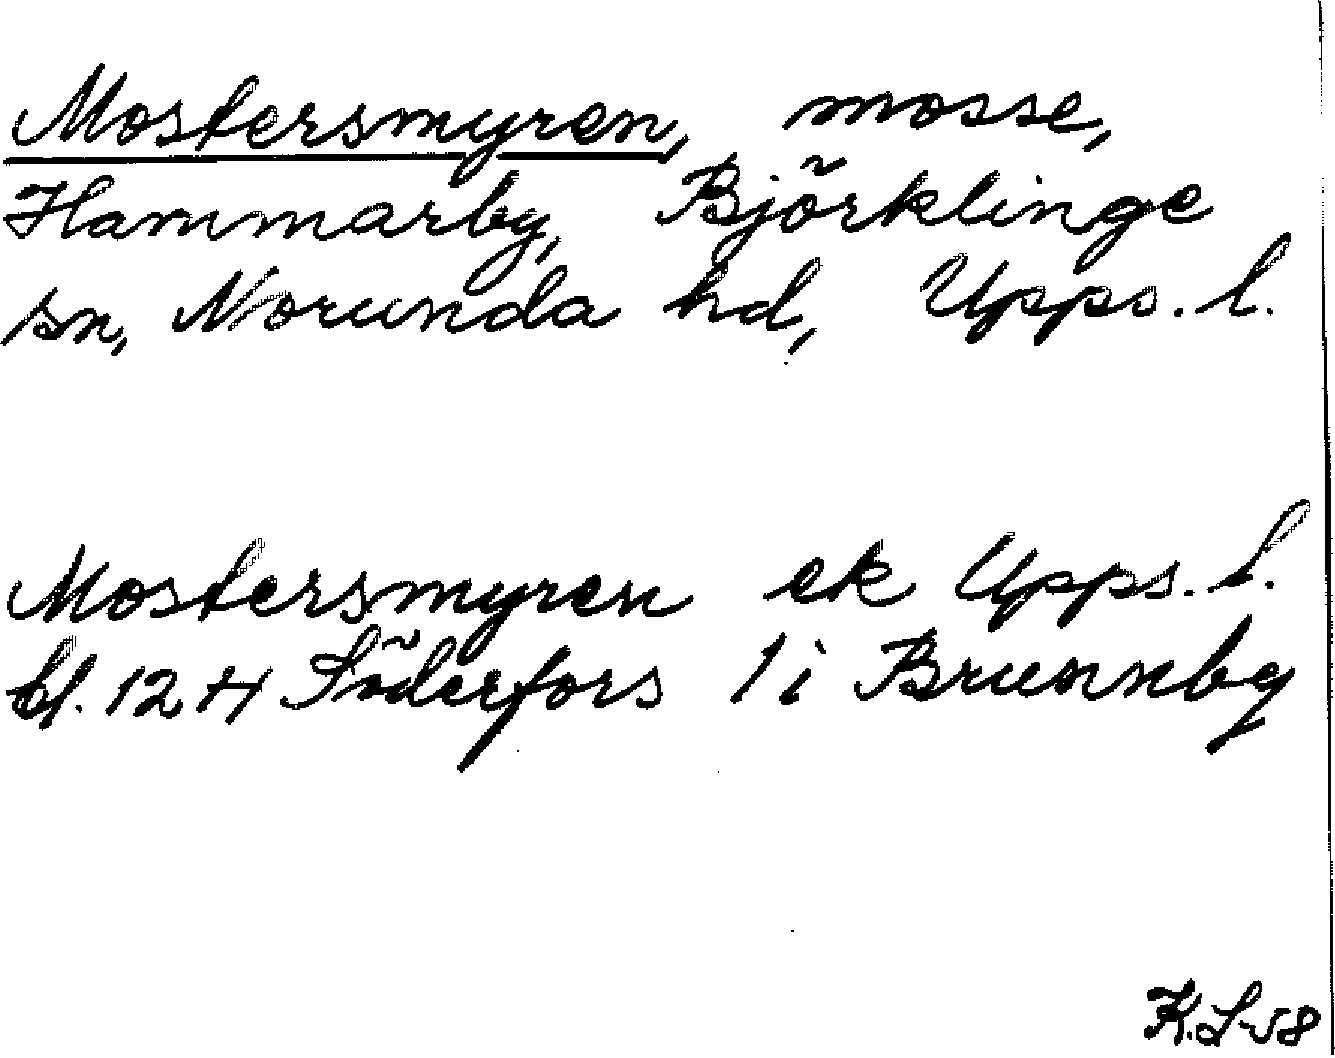 Mostersmyren, mosse,
Hammarby, Björklinge
sn, Norunda hd, Upps. l.
Mostersmyren ek Upps. l.
bl. 12 H Söderfors 1 i Brunnby
K.L-58